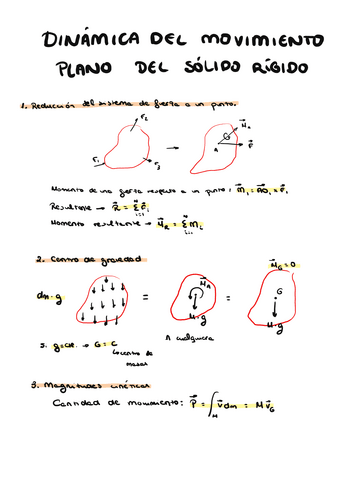 DINÁMICA DEL MOVIMIENTO
PLANO DEL SÓLIDO RÍGIDO
1. Reducción del sistema de fuerza a un punto.
F₂
F₁
F₃
→
M⃗_A
G
A
F⃗
Momento de una fuerza respecto a un punto: M⃗ᵢ = AO⃗ᵢ × F⃗ᵢ
Resultante → R⃗ = Σᵢ₌₁ᴺ F⃗ᵢ
Momento resultante → M⃗_R = Σᵢ₌₁ᴺ Mᵢ
2. Centro de gravedad
M⃗_G = 0
dm · g
=
M⃗_A
M · g
=
G
M · g
A cualquiera
S. g = cte. → G = C
↳ centro de
masas
3. Magnitudes cinéticas
Cantidad de movimiento: P⃗ = ∫_M v⃗ dm = M v⃗_G